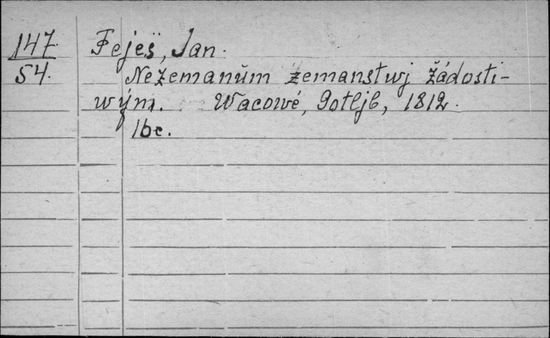 147 Feješ, Jan.
54. Nezemanům zemanstwj žádosti-
wým. Wacowé, Gotljb, 1812.